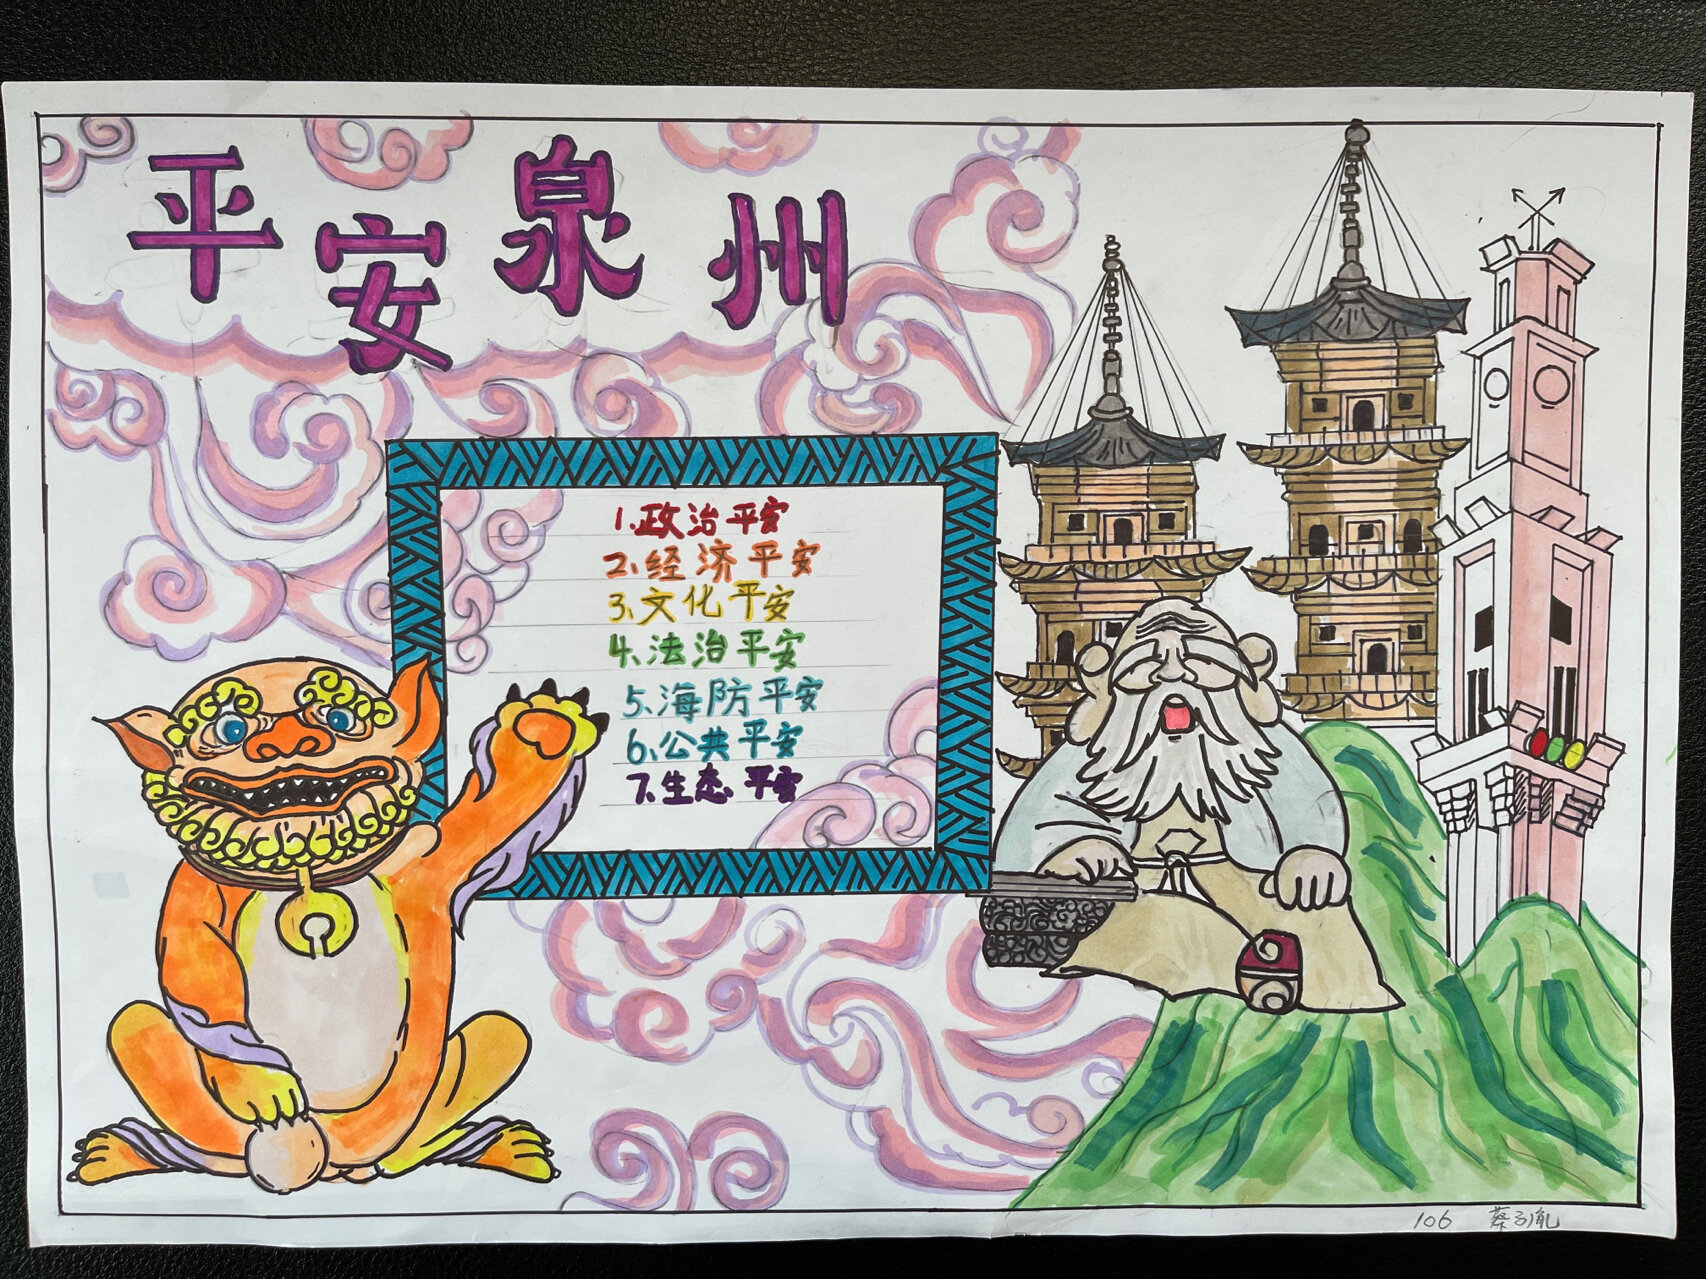 平安泉州
1、政治平安
2、经济平安
3、文化平安
4、法治平安
5、海防平安
6、公共平安
7、生态平安
106 蔡子胤